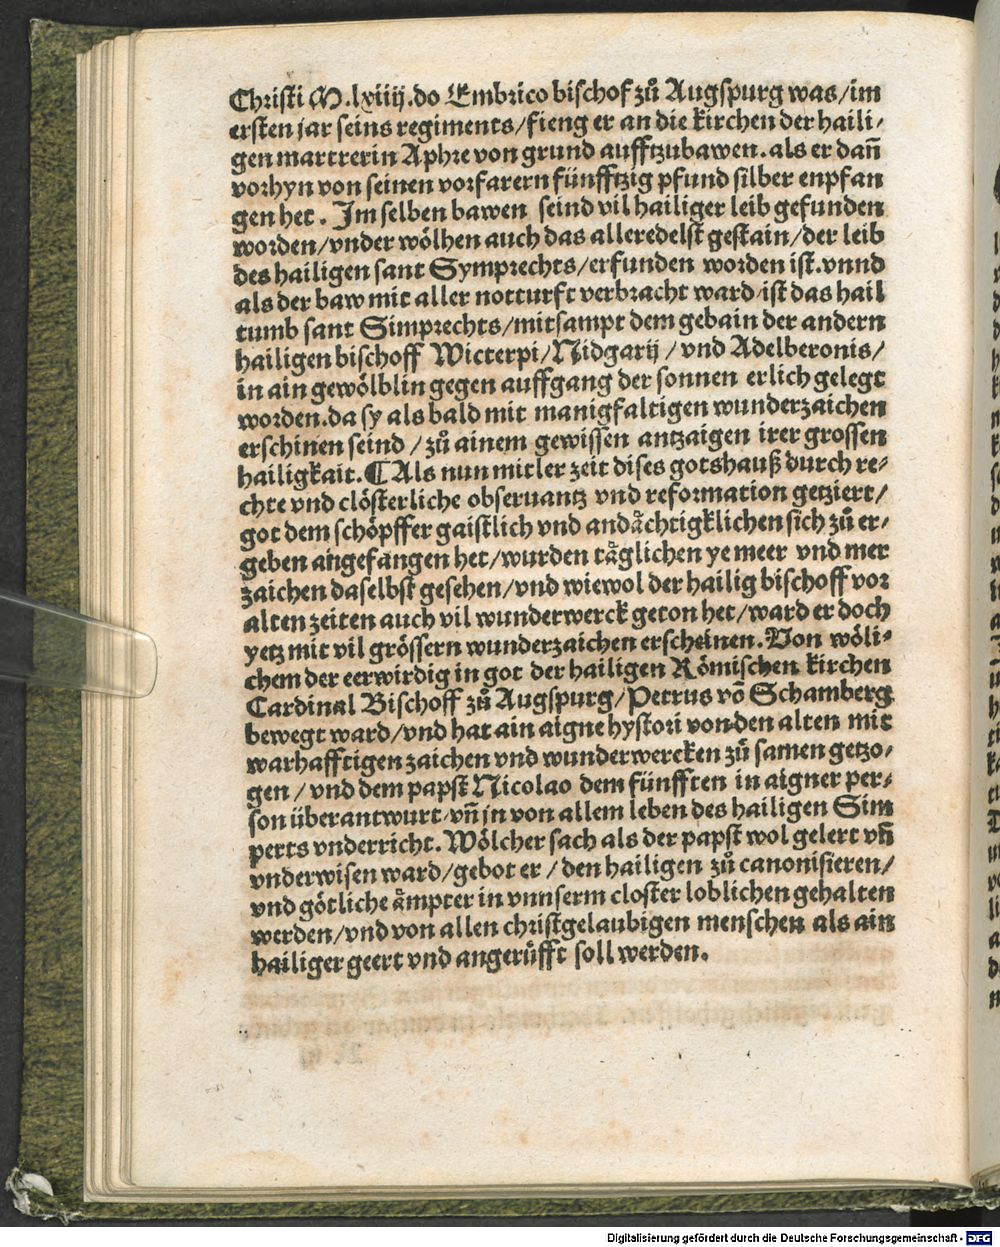 Christi M.lxiiij.do Embrico bischof zů Augspurg was/im
ersten jar seins regiments/fieng er an die kirchen der haili⸗
gen martrerin Aphre von grund aufftzubawen.als er dañ
vorhyn von seinen vorfarern fünfftzig pfund silber enpfan
gen het. Im selben bawen seind vil hailiger leib gefunden
worden/vnder wölhen auch das alleredelst gestain/der leib
des hailigen sant Symprechts/erfunden worden ist.vnnd
als der baw mit aller notturft verbracht ward/ist das hail
tumb sant Simprechts/mitsampt dem gebain der andern
hailigen bischoff Wicterpi/Nidgarij/vnd Adelberonis/
in ain gewölblin gegen auffgang der sonnen erlich gelegt
worden.da sy als bald mit manigfaltigen wunderzaichen
erschinen seind/zů ainem gewissen antzaigen irer grossen
hailigkait.¶Als nun mitler zeit dises gotshauß durch re⸗
chte vnd clösterliche obseruantz vnd reformation getziert/
got dem schöpffer gaistlich vnd andächtigklichen sich zů er⸗
geben angefangen het/wurden täglichen ye meer vnd mer
zaichen daselbst gesehen/vnd wiewol der hailig bischoff vor
alten zeiten auch vil wunderwerck geton het/ward er doch
yetz mit vil grössern wunderzaichen erscheinen.Von wöli⸗
chem der eerwirdig in got der hailigen Römischen kirchen
Cardinal Bischoff zů Augspurg/Petrus võ Schamberg
bewegt ward/vnd hat ain aigne hystori von den alten mit
warhafftigen zaichen vnd wunderwercken zů samen getzo⸗
gen/vnd dem papst Nicolao dem fünfften in aigner per⸗
son überantwurt/vñ jn von allem leben des hailigen Sim
perts vnderricht.Wölcher sach als der papst wol gelert vñ
vnderwisen ward/gebot er/den hailigen zů canonisieren/
vnd götliche ämpter in vnnserm closter loblichen gehalten
werden/vnd von allen christgelaubigen menschen als ain
hailiger geert vnd angerüfft soll werden.
Digitalisierung gefördert durch die Deutsche Forschungsgemeinschaft - DFG